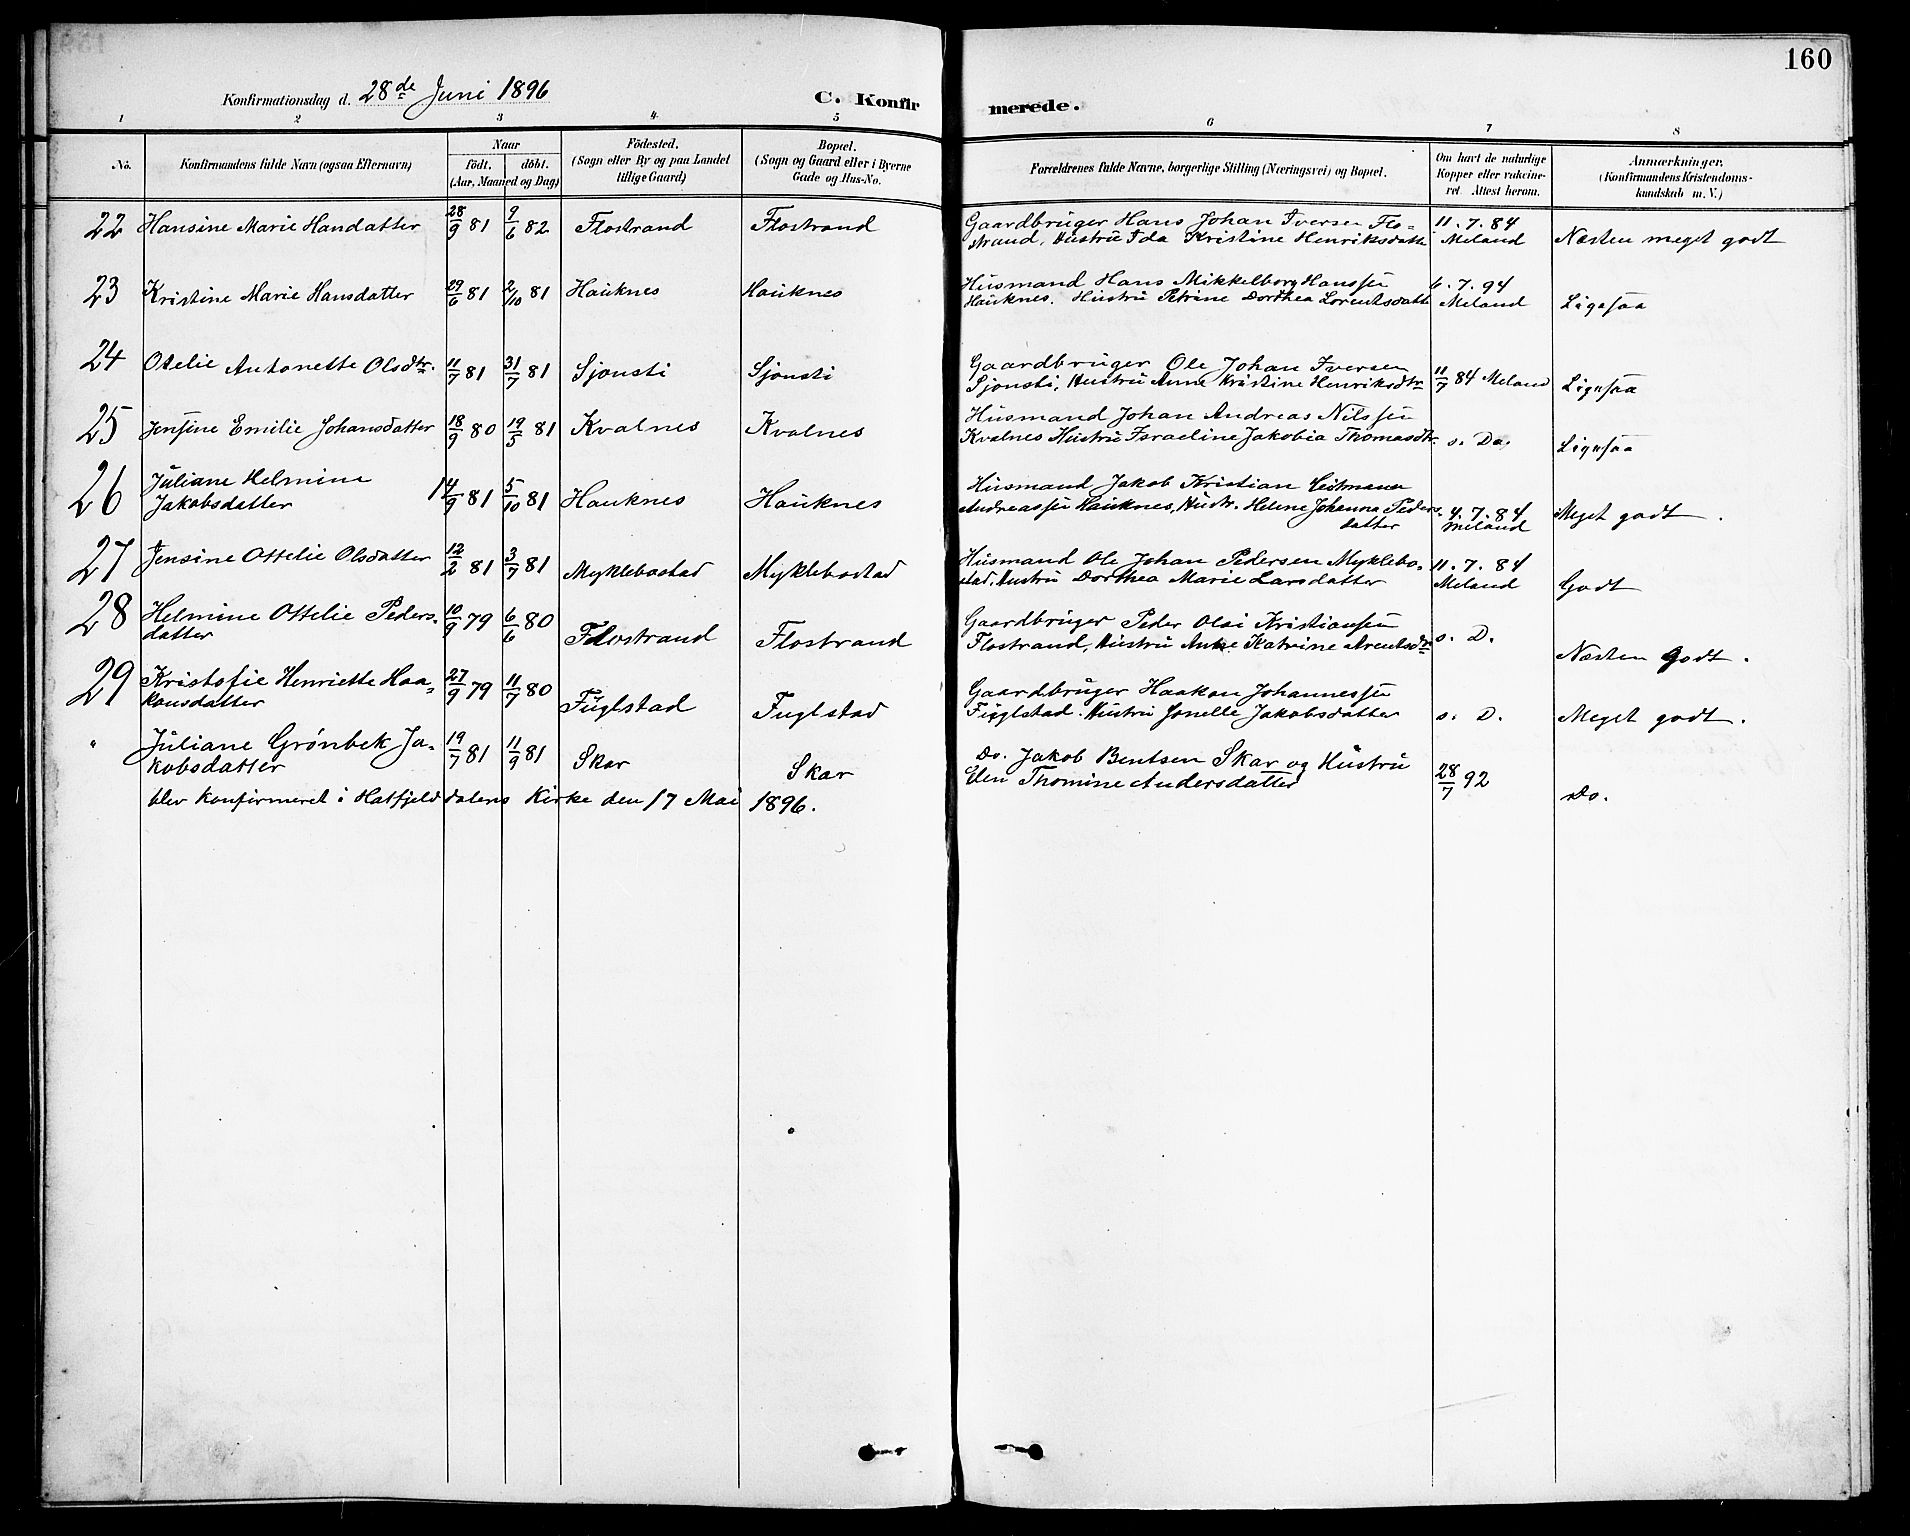 160
Konfirmationsdag d. 28de Juni 1896
C. Konfirmerede.
1 2 3 4 5 6 7 8
No. Konfirmandens fulde Navn (ogsaa Efternavn) Naar födt. döbt. (Aar, Maaned og Dag) Födested. (Sogn eller By og paa Landet tillige Gaard) Bopæl. (Sogn og Gaard eller i Byerne Gade og Hus-No. Forældrenes fulde Navne, borgerlige Stilling (Næringsvei) og Bopæl. Om havt de naturlige Kopper eller vakcineret. Attest herom. Anmærkninger. (Konfirmandens Kristendomskundskab m. V.)
22 Hansine Marie Handatter 28/9 81 9/6 82 Flostrand Flostrand Gaardbruger Hans Johan Iversen Flo- 11.7.84
strand, Hustru Ida Kristine Henriksdatte Meland Næsten meget godt
23 Kristine Marie Hansdatter 29/6 81 2/10 81 Hauknes Hauknes Husmand Hans Mikkelborg Hanssen 6.7.94
Hauknes. Hustru Petrine Dorthea Lorentsdatte Meland Ligesaa
24 Otelie Antonette Olsdtr. 11/7 81 31/7 81 Sjonsti Sjonsti Gaardbruger Ole Johan Iversen
Sjonsti, Hustru Anne Kristine Henriksdtr 11/7 84 Meland Ligesaa
25 Jensine Emilie Johansdatter 18/9 80 19/5 81 Kvalnes Kvalnes Husmand Johan Andreas Nilssen
Kvalnes Hustru Israeline Jakobia Thomasdtr. s. Do. Ligesaa
26 Juliane Helmine 14/9 81 5/10 81 Hauknes Hauknes Husmand Jakob Kristian
Jakobsdatter Andreassen Hauknes, Hustr. Helene Johanna Peders- 4.7.84 Meget godt.
datter Meland
27 Jensine Ottelie Olsdatter 12/2 81 3/7 81 Myklebostad Myklebostad Husmand Ole Johan Pedersen Myklebo- 11.7.84
stad, Hustru Dorthea Marie Larsdatter Meland Godt
28 Helmine Ottelie Peders- 10/9 79 6/6 80 Flostrand Flostrand Gaardbruger Peder Olai Kristiansen
datter Flostrand, Hustru Anne Katrine Arentsdtr s. D. Næsten godt.
29 Kristofie Henriette Haa- 27/9 79 11/7 80 Fuglstad Fuglstad Gaardbruger Haakon Johannessen
konsdatter Fuglstad. Hustru Jonelle Jakobsdatter s. D. Meget godt.
" Juliane Grønbek Ja- 19/7 81 11/9 81 Skar Skar Do. Jakob Bentsen Skar og Hustru
kobsdatter Elen Thomine Andersdatter 28/7 92 Do.
blev konfirmeret i Hatfjelddalens Kirke den 17 Mai 1896.